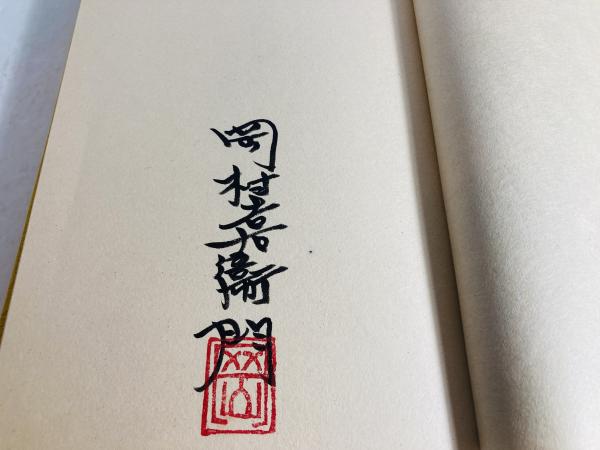 岡村吉右衛門